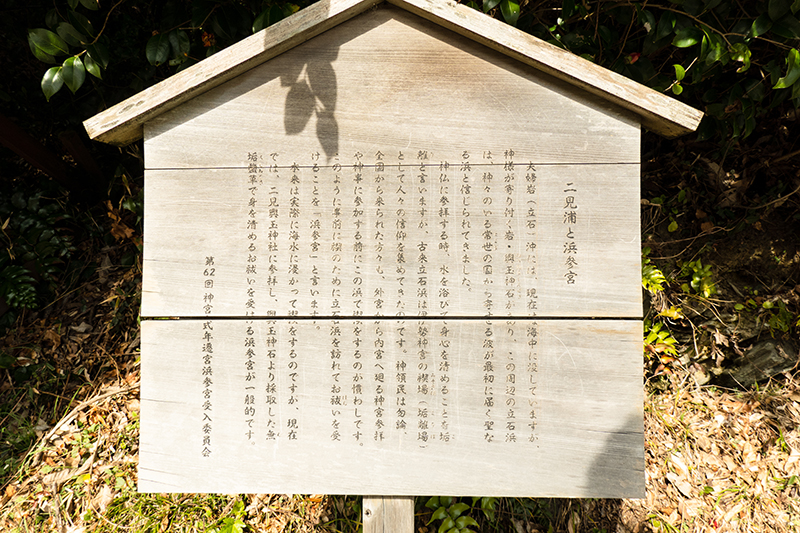 二見浦と浜参宮
夫婦岩(立石)沖には、現在は海中に没していますが、
神様が寄り付く岩・興玉神石があり、この周辺の立石浜
は、神々のいる常世の国から寄せる波が最初に届く聖な
る浜と信じられてきました。
神仏に参拝する時、水を浴びて身心を清めることを垢
離と言いますが、古来立石浜は伊勢神宮の禊場(垢離場)
として人々の信仰を集めてきたのです。神領民は勿論、
全国から来られた方々も、外宮から内宮へ廻る神宮参拝
や神事に参加する前にこの浜で禊をするのが慣わしです。
このように事前に禊のために立石浜を訪れてお祓いを受
けることを「浜参宮」と言います。
本来は実際に海水に浸かって禊をするのですが、現在
では、二見興玉神社に参拝し、興玉神石より採取した無
垢塩草で身を清めるお祓いを受ける浜参宮が一般的です。
第62回神宮式年遷宮浜参宮受入委員会